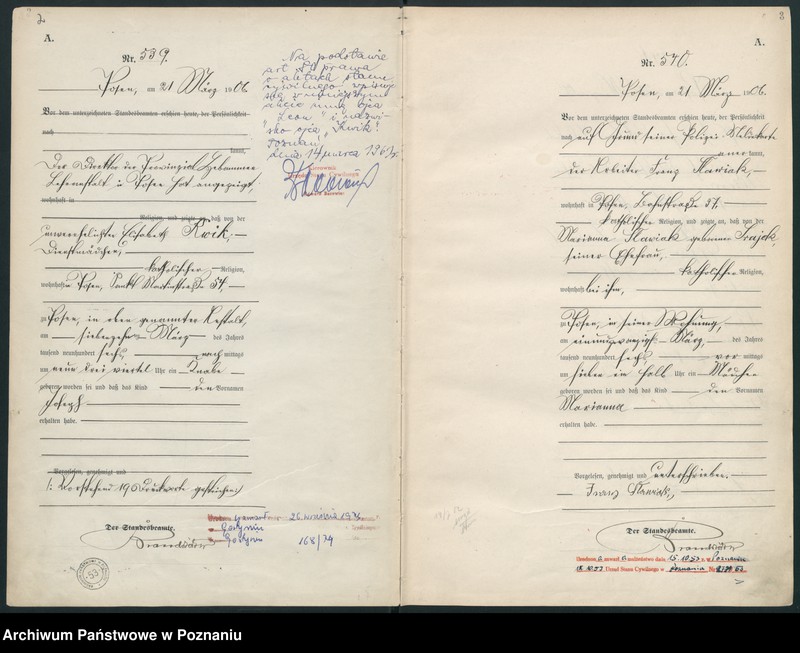 A.
Nr. 539.
Posen, am 21 März 1906.
Vor dem unterzeichneten Standesbeamten erschien heute, der Persönlichkeit
nach
kannt,
Der Direktor der Provinzial Hebammen
Lehranstalt in Posen hat angezeigt,
wohnhaft in
Religion, und zeigte an, daß von der
unverehelichten Elisabeth Kwik,
Dienstmädchen,
katholischer Religion,
wohnhaft in Posen, Sankt Martinstraße 54
zu Posen, in oben genannter Anstalt,
am siebzehnten März des Jahres
tausend neunhundert sechs, nachmittags
um neun drei viertel Uhr ein Knabe
geboren worden sei und daß das Kind den Vornamen
Joseph
erhalten habe.
Vorgelesen, genehmigt und
Vorstehend 19 Druckworte gestrichen.
Der Standesbeamte.
Na podstawie
art.
prawa
o aktach stanu
cywilnego wpisuje
się
akcie imię ojca
"Leon" i nazwi-
sko ojca "Kwik"
Poznań
dnia 14 marca 1963 r.
26 września 1936
Gostyniu
Gostyń 168/74
A.
Nr. 540.
Posen, am 21 März 1906.
Vor dem unterzeichneten Standesbeamten erschien heute, der Persönlichkeit
nach auf Grund seiner Polizei-Meldekarte
kannt,
der Arbeiter Franz Slawiak,
wohnhaft in Posen, 37,
katholischer Religion, und zeigte an, daß von der
Marianna Slawiak geborenen
seiner Ehefrau,
katholischer Religion,
wohnhaft bei ihm,
zu Posen, in seiner Wohnung,
am einundzwanzigsten März, des Jahres
tausend neunhundert sechs vormittags
um sieben ein halb Uhr ein Mädchen
geboren worden sei und daß das Kind den Vornamen
Marianna
erhalten habe.
Vorgelesen, genehmigt und unterschrieben.
Franz Slawiak,
Der Standesbeamte.
małżeństwo dnia 15.10.53 r. w Poznaniu
Urząd Stanu Cywilnego w Poznaniu Nr
Archiwum Państwowe w Poznaniu